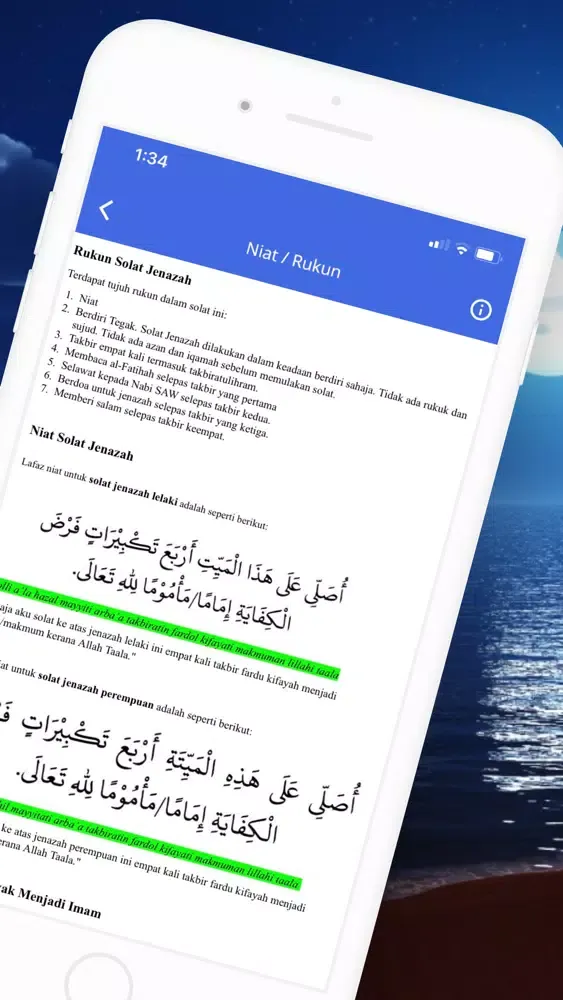 1:34
Niat / Rukun
Rukun Solat Jenazah
Terdapat tujuh rukun dalam solat ini:
1. Niat
2. Berdiri Tegak. Solat Jenazah dilakukan dalam keadaan berdiri sahaja. Tidak ada rukuk dan
sujud. Tidak ada azan dan iqamah sebelum memulakan solat.
3. Takbir empat kali termasuk takbiratulihram.
4. Membaca al-Fatihah selepas takbir yang pertama
5. Selawat kepada Nabi SAW selepas takbir kedua.
6. Berdoa untuk jenazah selepas takbir yang ketiga.
7. Memberi salam selepas takbir keempat.
Niat Solat Jenazah
Lafaz niat untuk solat jenazah lelaki adalah seperti berikut:
أُصَلِّي عَلَى هَذَا الْمَيِّتِ أَرْبَعَ تَكْبِيْرَاتٍ فَرْضَ
الْكِفَايَةِ إِمَامًا/مَأْمُوْمًا لِلّٰهِ تَعَالَى.
a'la hazal mayyiti arba'a takbiratin fardol kifayati makmuman lillahi taala
aku solat ke atas jenazah lelaki ini empat kali takbir fardu kifayah menjadi
/makmum kerana Allah Taala."
untuk solat jenazah perempuan adalah seperti berikut:
أُصَلِّي عَلَى هَذِهِ الْمَيِّتَةِ أَرْبَعَ تَكْبِيْرَاتٍ
الْكِفَايَةِ إِمَامًا/مَأْمُوْمًا لِلّٰهِ تَعَالَى.
mayyitati arba'a takbiratin fardol kifayati makmuman lillahi taala
ke atas jenazah perempuan ini empat kali takbir fardu kifayah menjadi
Allah Taala."
Menjadi Imam